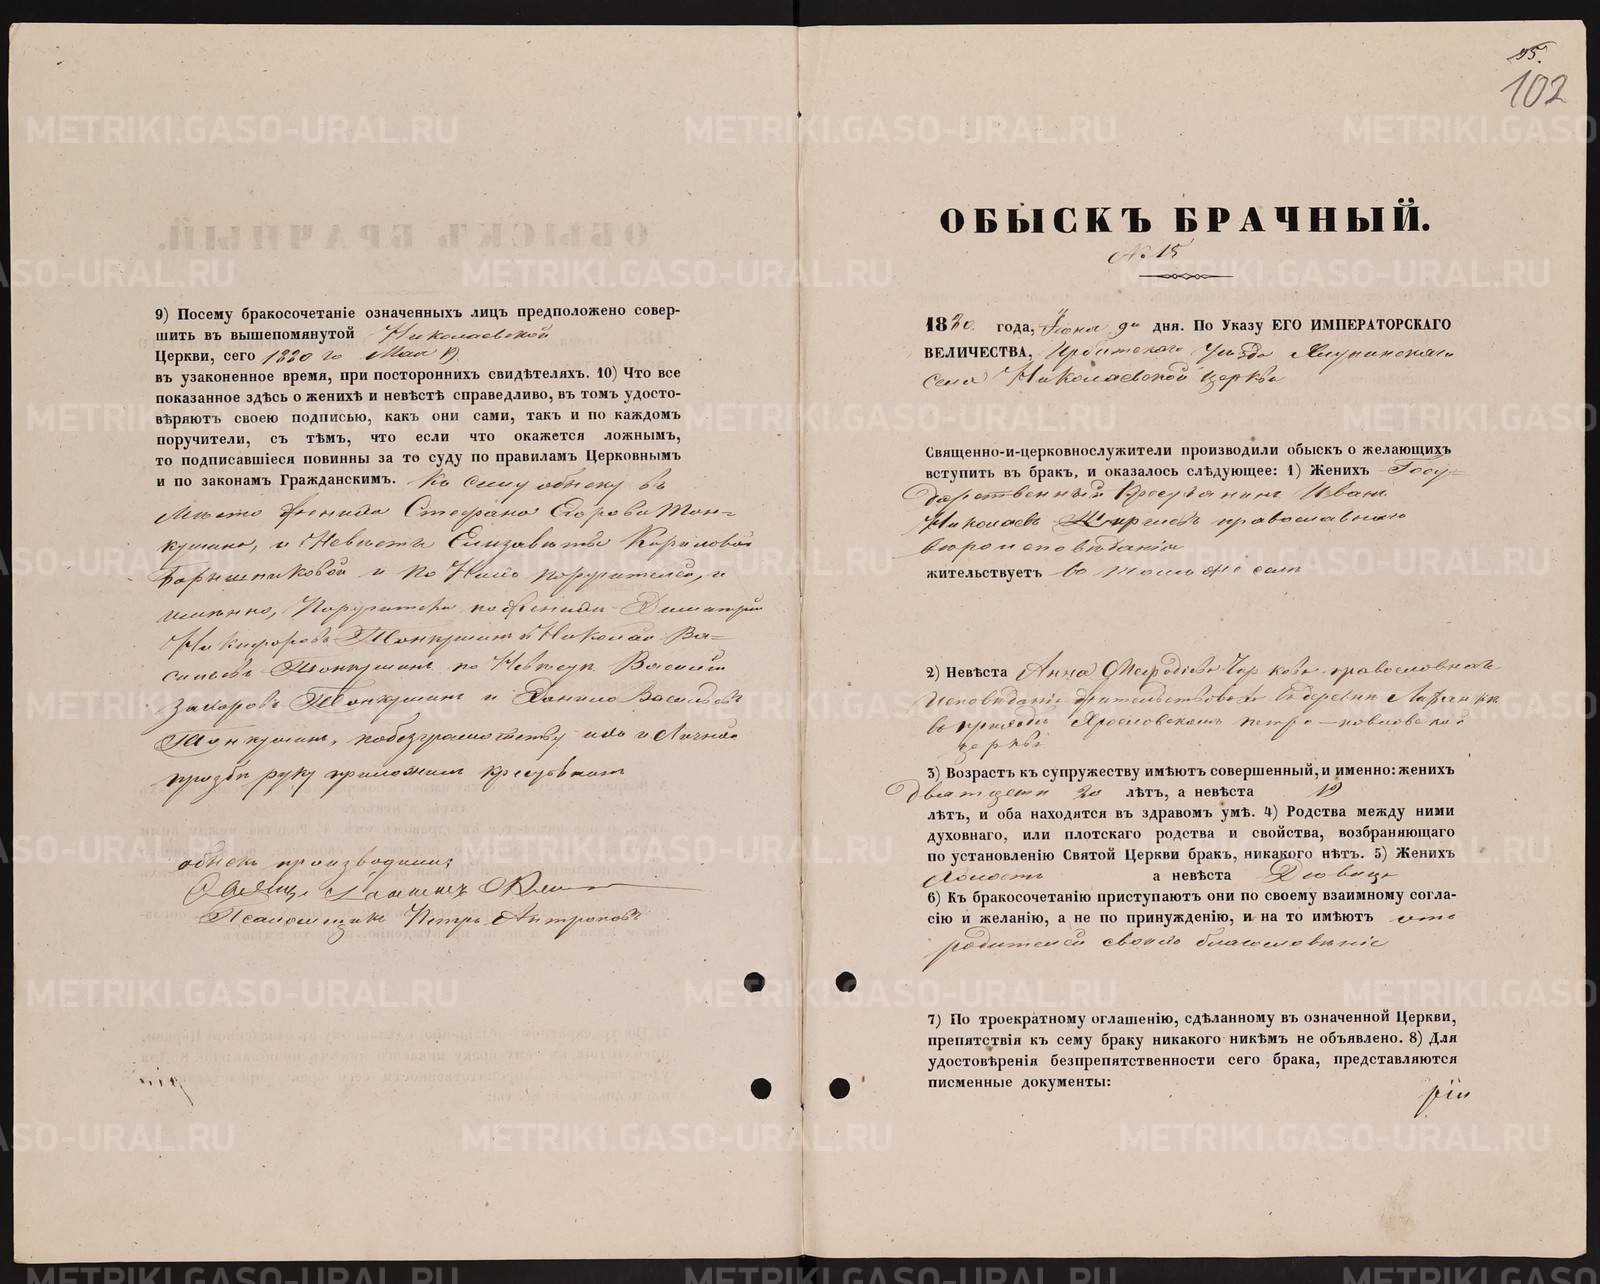 9) Посему бракосочетаніе означенныхъ лицъ предположено совер-
шить въ вышепомянутой Николаевской
Церкви, сего 1880 го Мая
въ узаконенное время, при постороннихъ свидѣтеляхъ. 10) Что все
показанное здѣсь о женихѣ и невѣстѣ справедливо, въ томъ удосто-
вѣряютъ своею подписью, какъ они сами, такъ и по каждомъ
поручители, съ тѣмъ, что если что окажется ложнымъ,
то подписавшіеся повинны за то суду по правиламъ Церковнымъ
и по законамъ Гражданскимъ. Къ сему обыску въ
Мѣсто Жениха Стефана Егорова Тон-
кушина, и Невѣсты Елизаветы Кориловой
Барышниковой и по Нимъ поручителей, и
имѣнно, Поручители по Женихѣ Димитрій
Никифоровъ Тонкушинъ и Николай Ва-
сильевъ Тонкушинъ по Невѣсте Василій
Захаровъ Тонкушинъ и Данило Васильевъ
Тонкушинъ, по безграмотству ихъ и Личной
прозбѣ руку приложилъ крестьянинъ
обыскъ производили:
Псаломщикъ Петръ Антроповъ
95.
102
ОБЫСКЪ БРАЧНЫЙ.
№ 15
1880 года, Іюня 9го дня. По Указу ЕГО ИМПЕРАТОРСКАГО
ВЕЛИЧЕСТВА, Ирбитскаго Уѣзда
села Николаевской церкви
Священно-и-церковнослужители производили обыскъ о желающихъ
вступить въ бракъ, и оказалось слѣдующее: 1) Женихъ Госу-
дарственный Крестьянинъ Иванъ
Николаевъ православнаго
вѣроисповѣданія
жительствуетъ въ томъ же селѣ
2) Невѣста Анна православнаго
Исповѣданія жительствовала въ деревни
въ приходѣ Ярославскомъ петро-павловской
церкви
3) Возрастъ къ супружеству имѣютъ совершенный, и именно: женихъ
Дватцети 20 лѣтъ, а невѣста 19
лѣтъ, и оба находятся въ здравомъ умѣ. 4) Родства между ними
духовнаго, или плотскаго родства и свойства, возбраняющаго
по установленію Святой Церкви бракъ, никакого нѣтъ. 5) Женихъ
Холостъ а невѣста Дѣвица
6) Къ бракосочетанію приступаютъ они по своему взаимному согла-
сію и желанію, а не по принужденію, и на то имѣютъ отъ
родителей своихъ благословѣніе
7) По троекратному оглашенію, сдѣланному въ означенной Церкви,
препятствія къ сему браку никакого никѣмъ не объявлено. 8) Для
удостовѣренія безпрепятственности сего брака, представляются
писменные документы:
METRIKI.GASO-URAL.RU